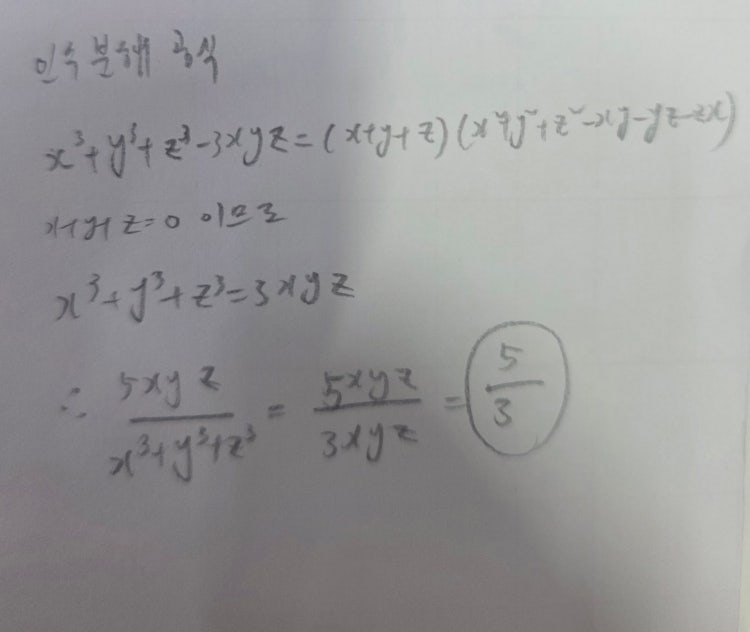 인수분해 공식
x³+y³+z³-3xyz=(x+y+z)(x²+y²+z²-xy-yz-zx)
x+y+z=0 이므로
x³+y³+z³=3xyz
∴ 5xyz/(x³+y³+z³) = 5xyz/3xyz = 5/3